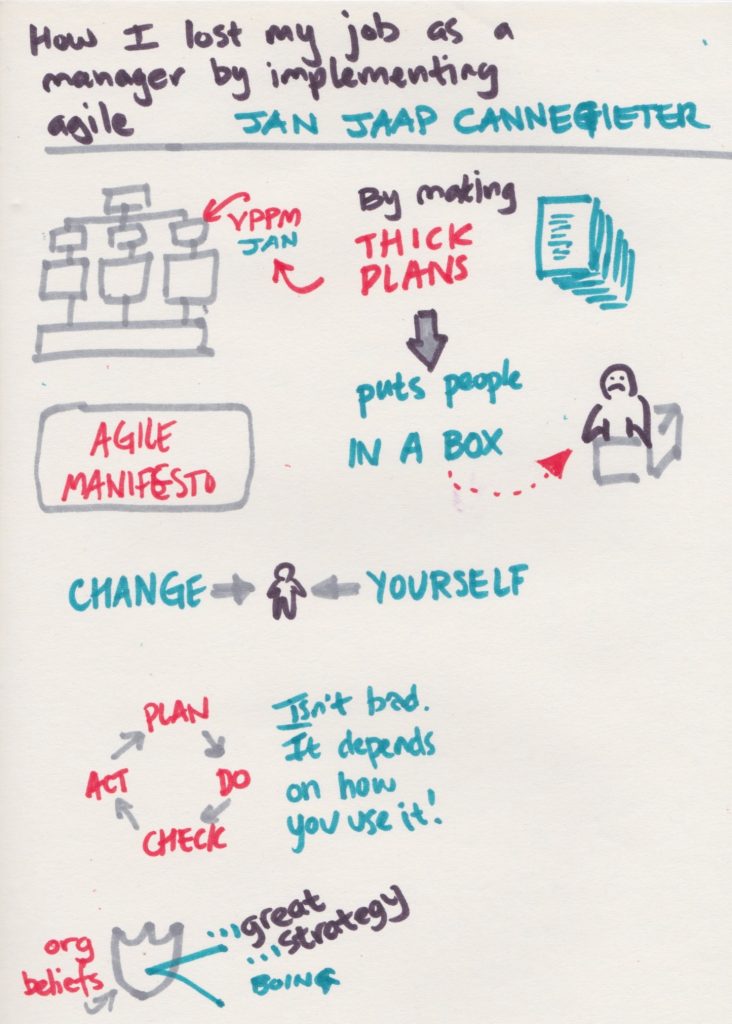 How I lost my job as a
manager by implementing
agile JAN JAAP CANNEGIETER
VPPM
JAN
By making
THICK
PLANS
puts people
IN A BOX
AGILE
MANIFESTO
CHANGE YOURSELF
PLAN
DO
CHECK
ACT
Isn't bad.
It depends
on how
you use it!
org
beliefs
...great
...strategy
BOING